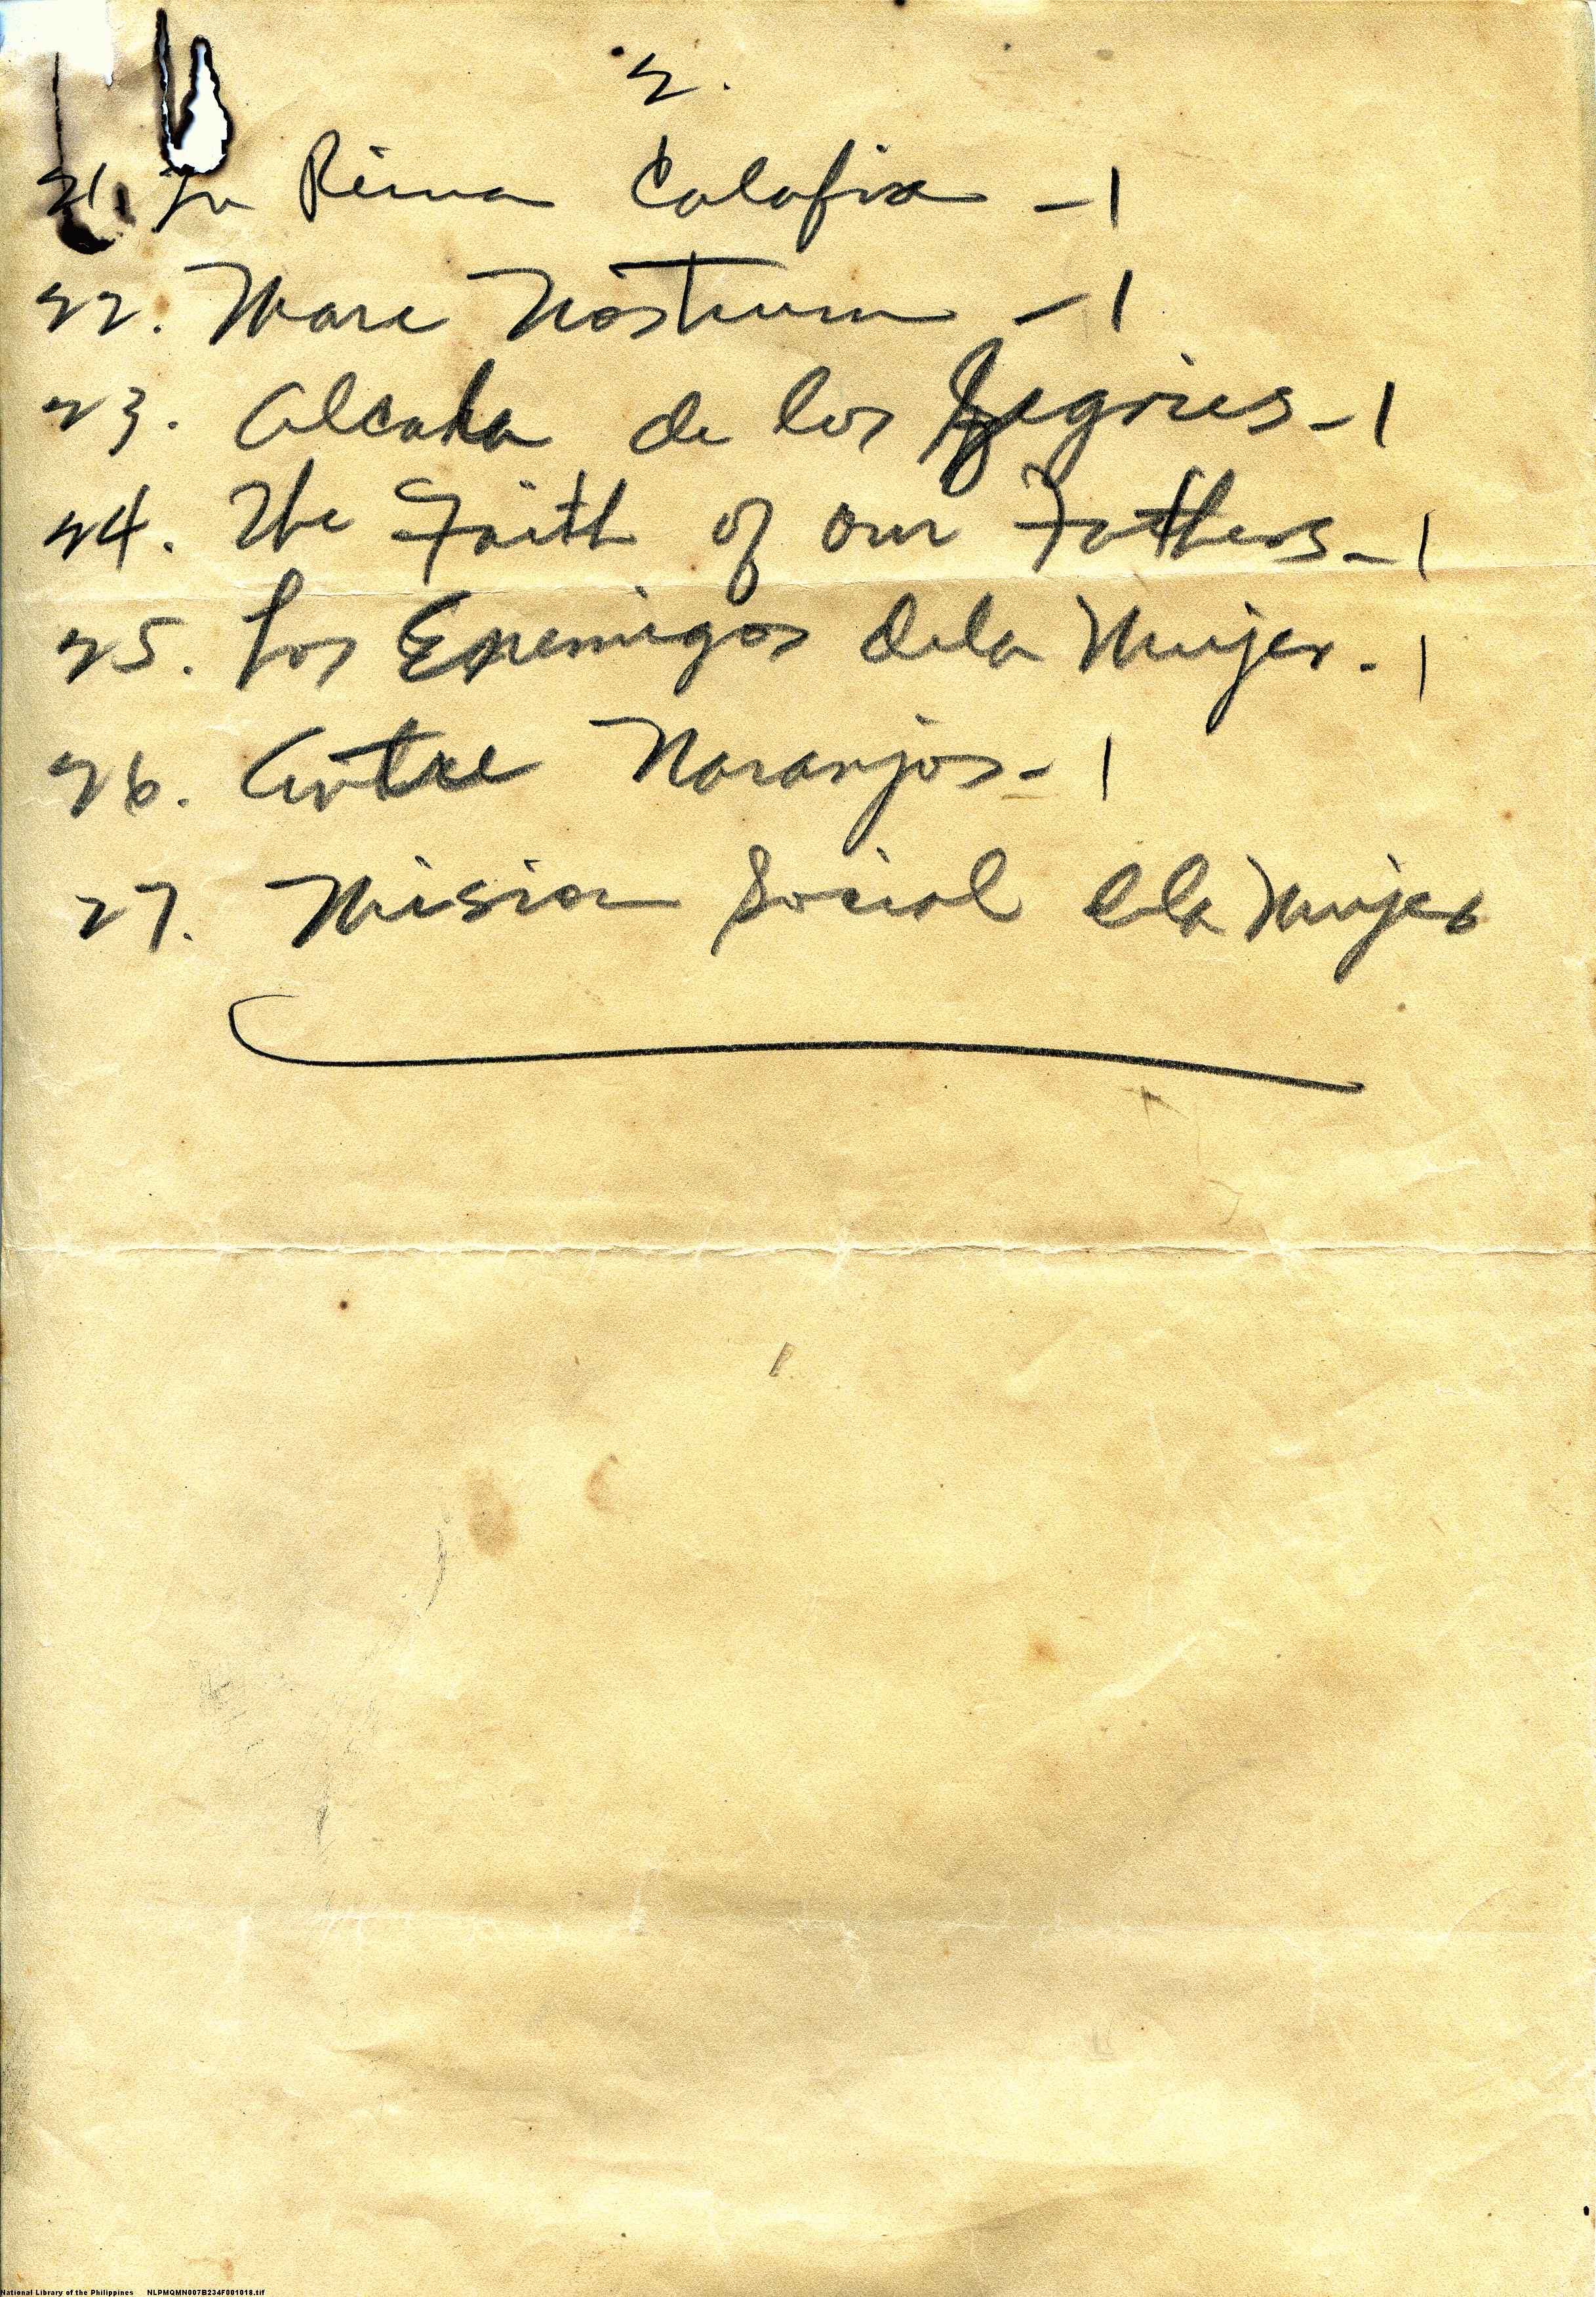 2.
21. La Reina Calafia - 1
22. Mare Nostrum - 1
23. Alcala de los Zegries - 1
24. The Faith of our Fathers - 1
25. Los Enemigos dela Mujer - 1
26. Entre Naranjos - 1
27. Mision Social dela Mujer
National Library of the Philippines NLPMQMN007B234F001018.tif